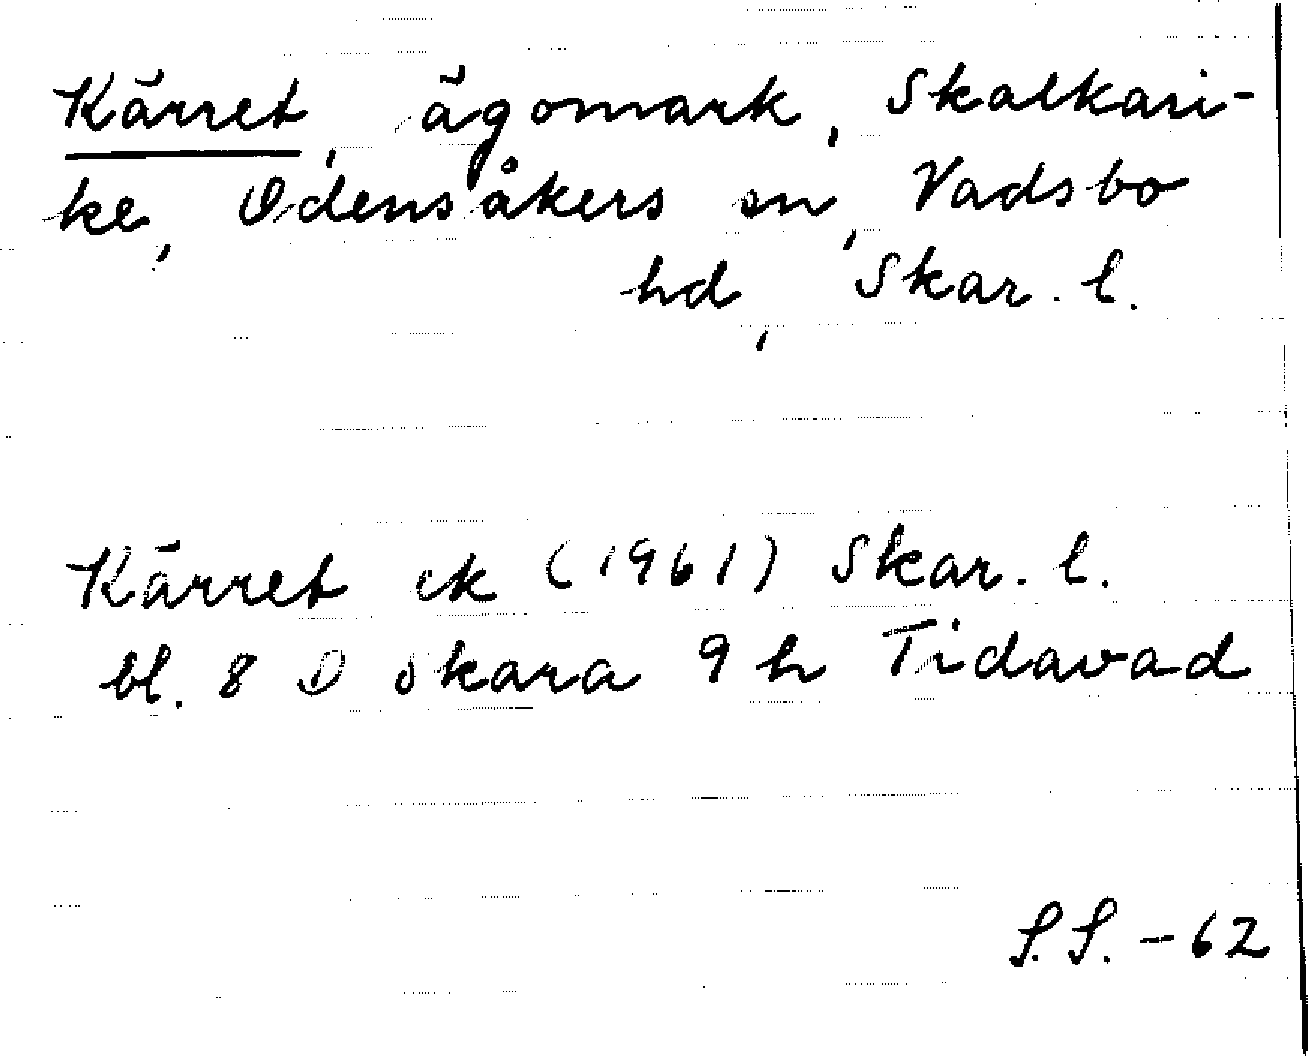 Kärret, ägomark, Skalkari-
ke, Odensåkers sn, Vadsbo
hd, Skar. l.
Kärret ek (1961) Skar. l.
bl. 8 D Skara 9 h Tidavad
S.S. - 62